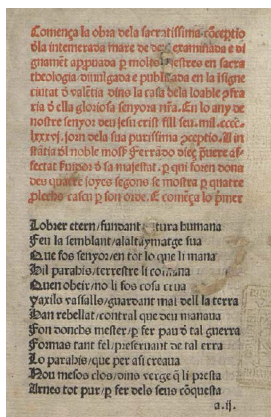 Comença la obra dela sacratissima cõceptio
dla intemerada mare de deu examinada e di
gnament appuada p molts mestres en sacra
theologia diuulgada e publicada en la insigne
ciutat de valẽtia dins la casa dela loable cõfra
ria d ella gloriosa senyora nr̃a. En lo any de
nostre senyor deu jesu crist fill seu. mil. cccc.
lxxxvj. jorn dela sua purissima cõceptio. A in
stãtia dl noble mossẽ ferrãdo dieç puere af-
fectat seruidor d sa majestat. p qui foren dona
des quatre joyes segons se mostra p quatre
plechs cascu p son orde. E comẽça lo primer
Lobrer etern/fundant natura humana
Feu la semblant/a la ymatge sua
Que fos senyor/en tot lo que li mana
Dil parahis/terrestre li comana
Quen obeir/no li fos cosa crua
vassalls/guardant mal dell la terra
Han rebellat/contral que deu manaua
Fon donchs mester/p fer pau d tal guerra
Formas tant fel/preseruant de tal erra
Lo parahis/que per asi creaua
Nou mesos clos/dins verge q̃ li presta
Arnes tot pur/p fer dels seus cõquesta
a.ij.